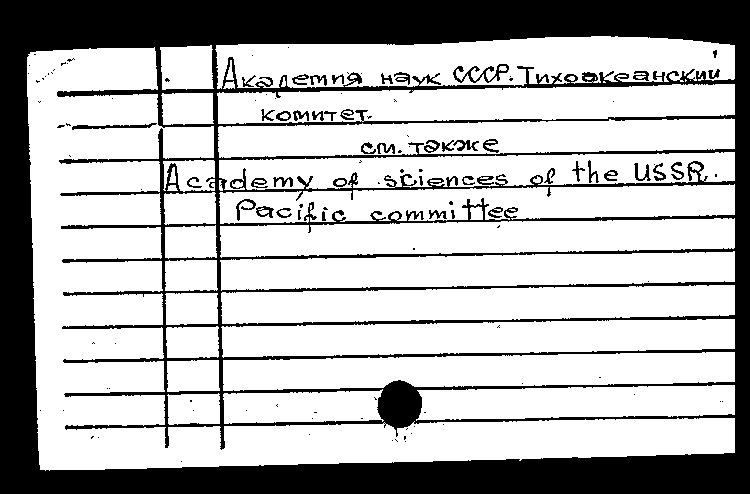 Академия наук СССР. Тихоокеанский
комитет.
см. также
Academy of sciences of the USSR.
Pacific committee